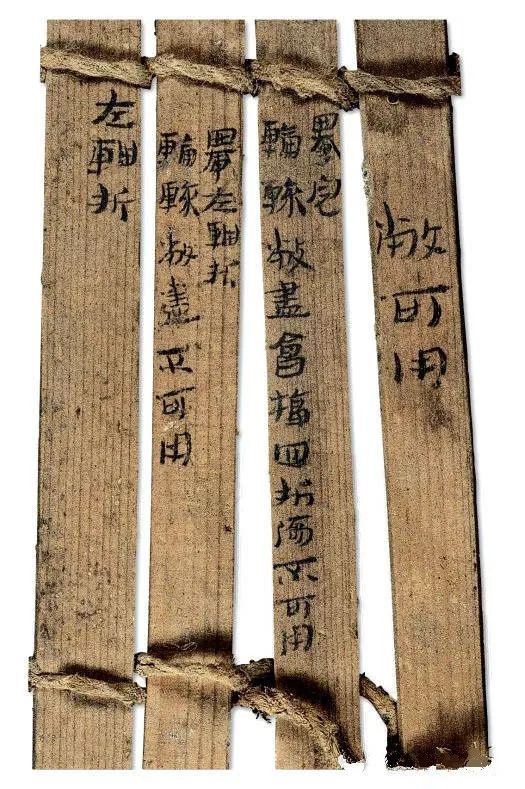 敝可用
輪輮敝盡福四折傷不可用
左軸折
輪輮敝盡不可用
左軸折